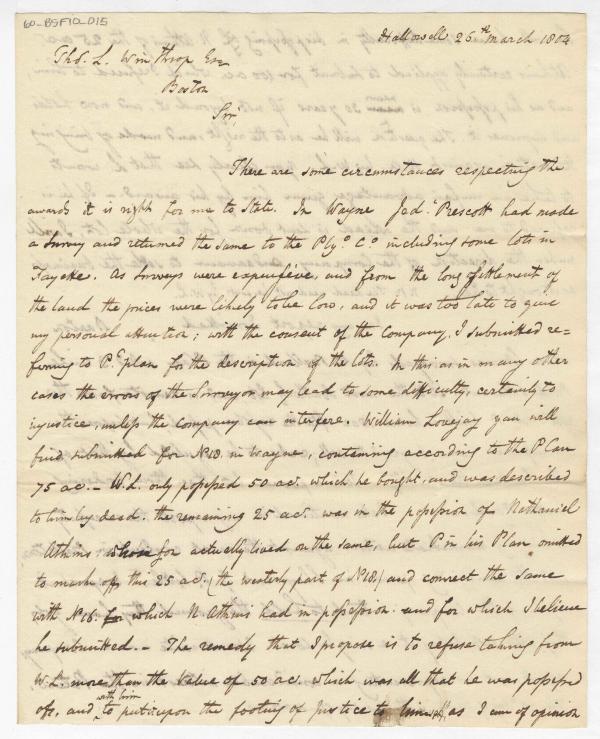 60-B5F10-D15
Hallowell 26th March 1804
Thos. L. Winthrop Esq
Boston
Sir,
There are some circumstances respecting the
awards it is right for me to State. In Wayne Jed. Prescott had made
a Survey and returned the same to the Plyo Co including some lots in
Fayette. As Surveys were expensive, and from the long settlement of
the land the prices were likely to be low, and it was too late to give
my personal attention; with the consent of the Company, I submitted re=
ferring to P.s plan for the description of the lots. In this as in many other
cases the errors of the Surveyor may lead to some difficulty, certainly to
injustice, unless the Company can interfere. William Lovejoy you will
find submitted for No 18. in Wayne, containing according to the Plan
75 ac. – W.L. only possessed 50 ac. which he bought, and was described
to him by deed. the remaining 25 ac. was in the possession of Nathaniel
Athins whose for actually lived on the same, but P. in his Plan omitted
to mark off this 25 ac. (the westerly part of No 18.) and connect the same
with No 16. for which N. Athins had in possession and for which I believe
he submitted. – The remedy that I propose is to refuse taking from
W.L. more than the value of 50 ac. which was all that he was possessed
off, and with him to put upon the footing of Justice to him as I am of opinion